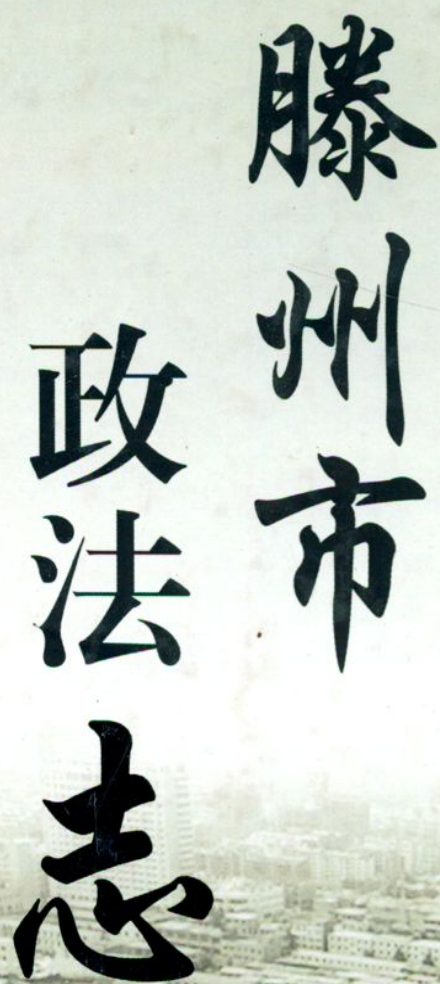 滕州市
政法志